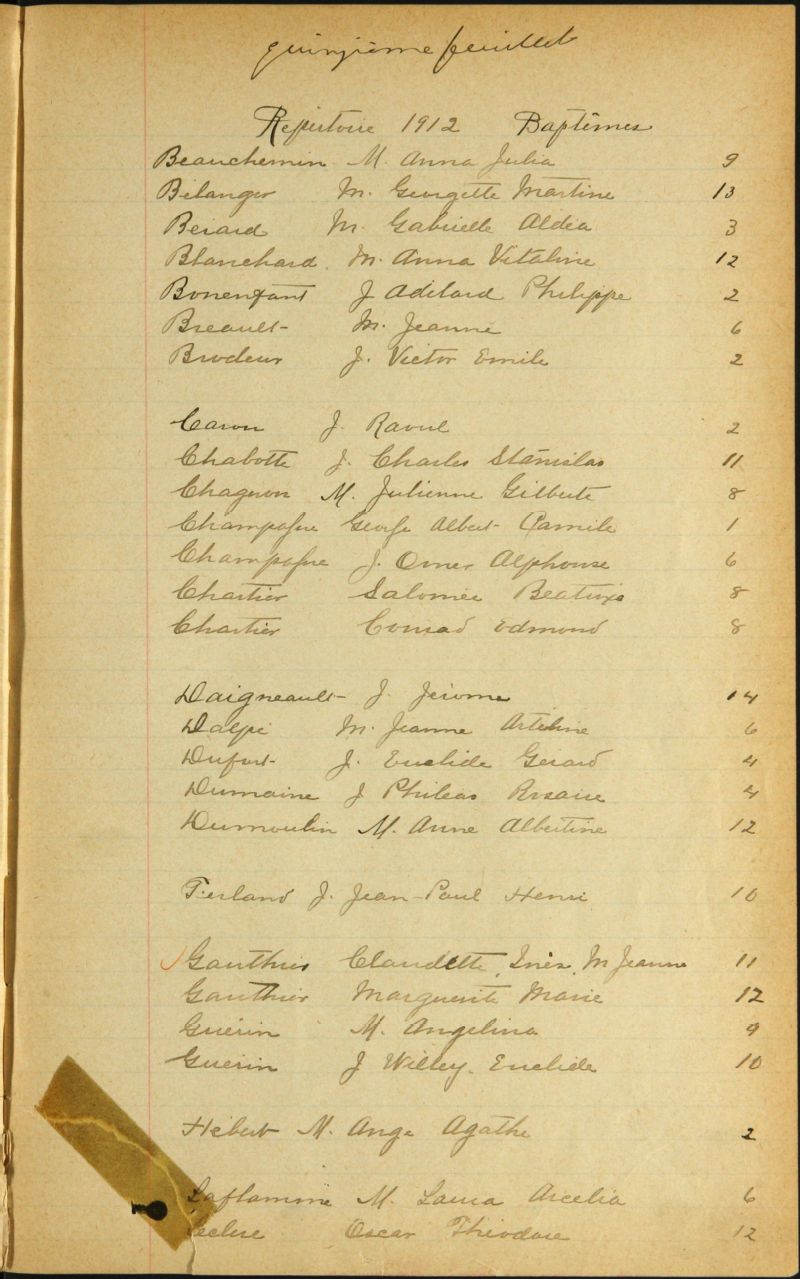 quinzième feuillet
Répertoire 1912 Baptêmes
Beauchemin M. Anna Julia 9
Bélanger M. Georgette Martine 13
Berard M. Gabrielle Aldéa 3
Blanchard M. Anna Vitaline 12
Bonenfant J Adélard Philippe 2
Breault M. Jeanne 6
Brodeur J. Victor Emile 2
Caron J. Raoul 2
Chabotte J. Charles Stanislas 11
Chagnon M. Julienne Gilberte 8
Champagne George Albert Camile 1
Champagne J. Omer Alphonse 6
Chartier Salomée Beatrix 8
Chartier Conrad Edmond 8
Daigneault J. Jérome 14
Dalpé M. Jeanne 6
Dufort J. Euclide Gerard 4
Dumaine J Phileas Rosaire 4
Dumoulin M. Anne Albertine 12
Ferland J. Jean-Paul Henri 10
Gauthier Claudette, Inès, M Jeanne 11
Gauthier Marguerite Marie 12
Guérin M. Angelina 9
Guérin J Willey, Euclide 10
Hébert M. Ange Agathe 2
Laflamme M. Laura Arcelia 6
Leclerc Oscar Théodore 12